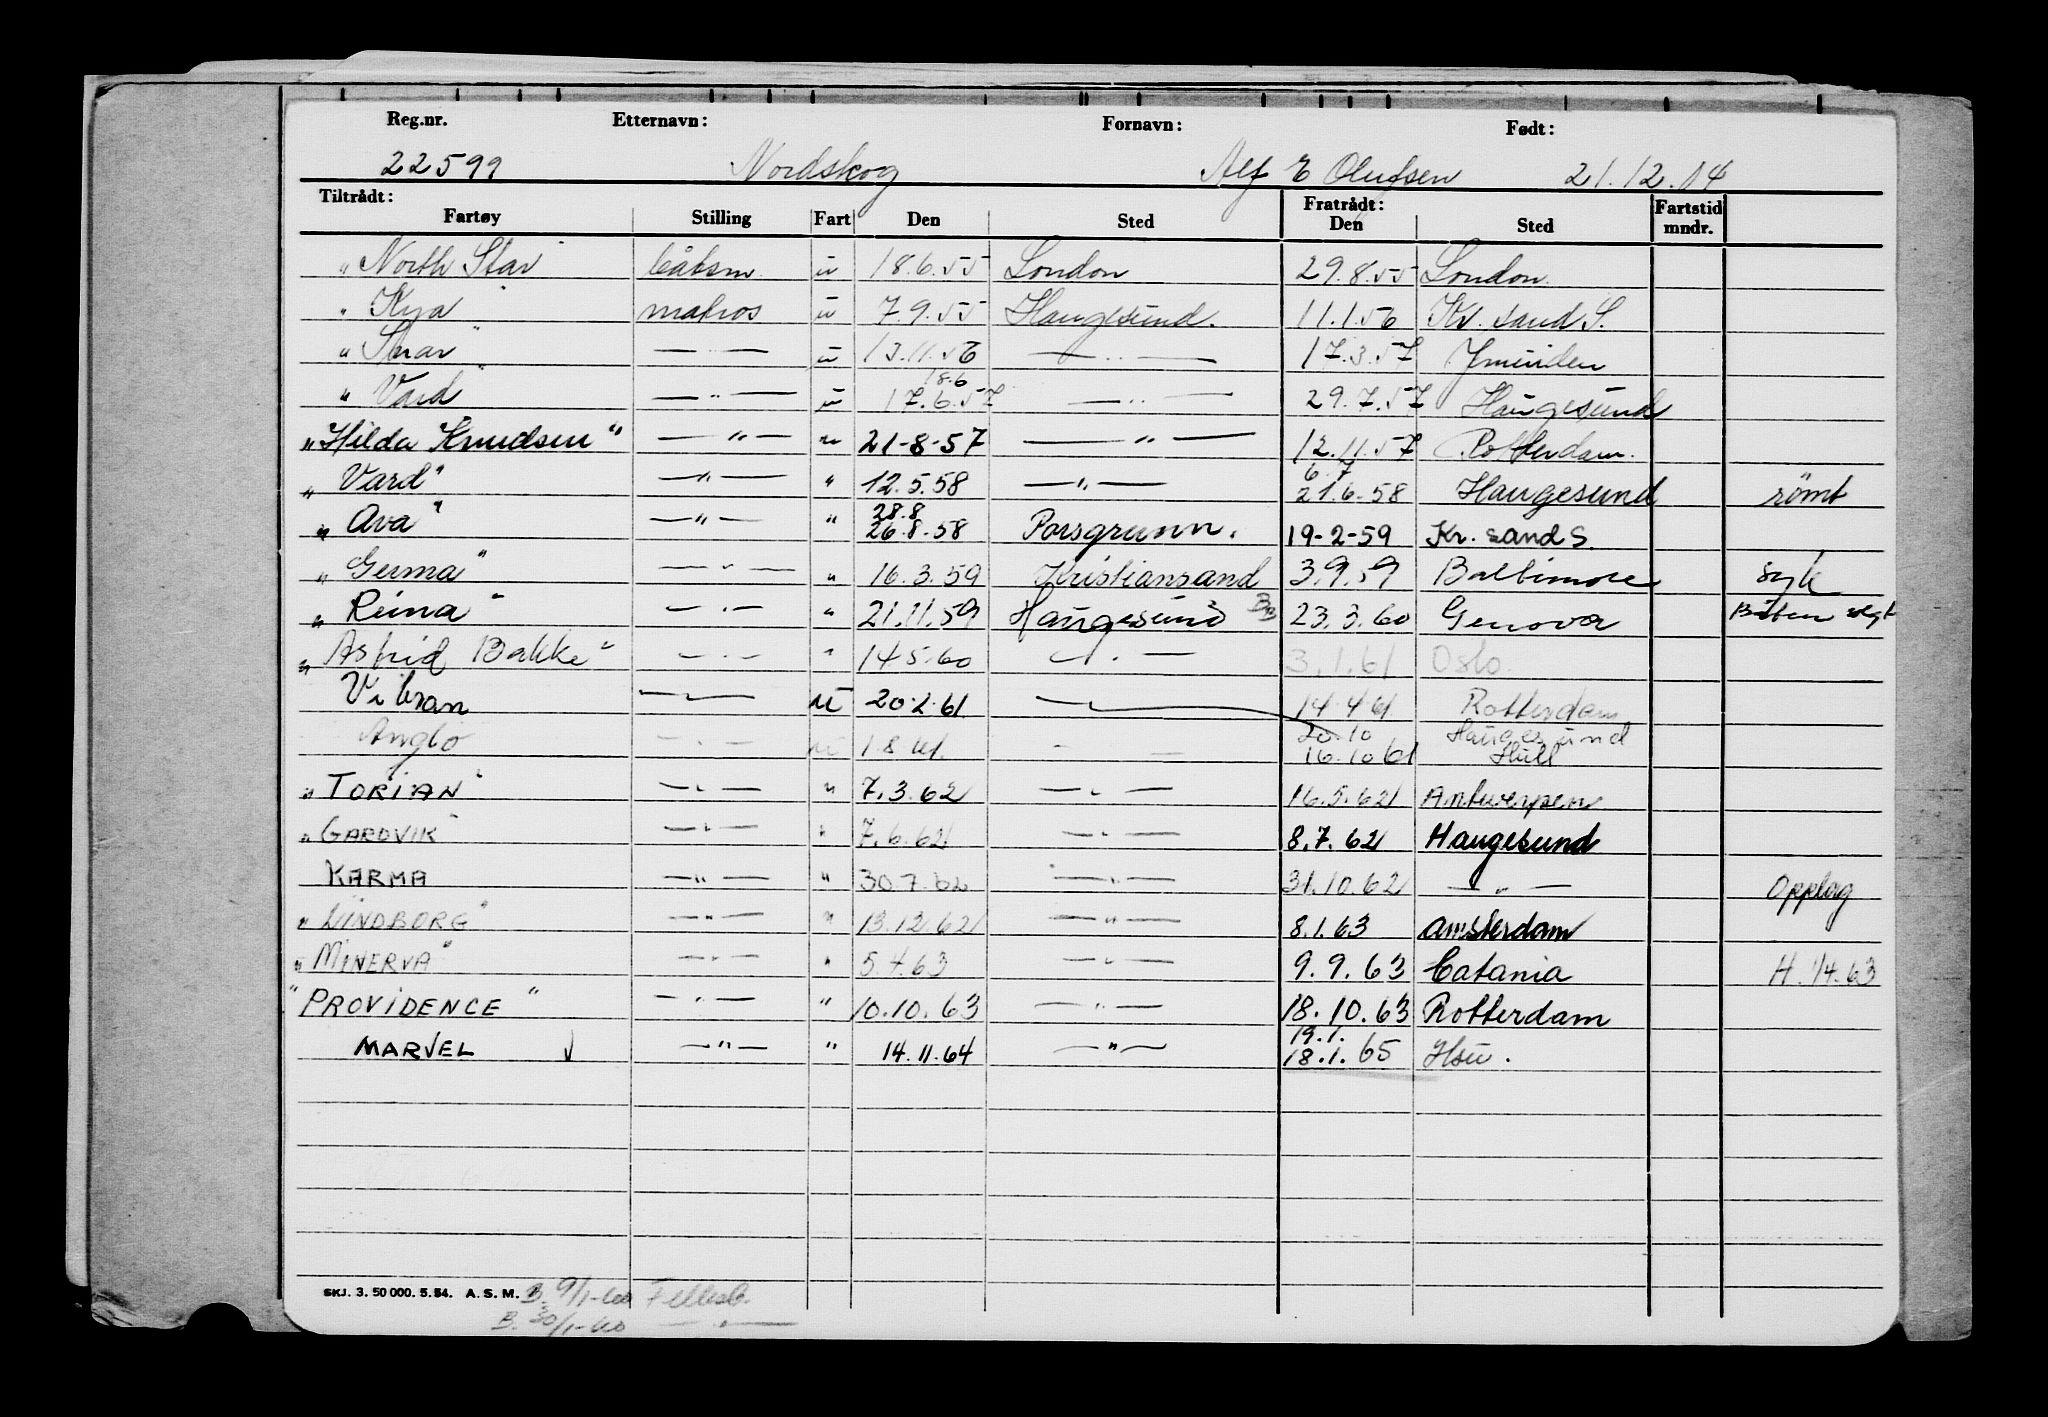 Reg.nr. Etternavn: Fornavn: Født:
22599 Nordskog Alf E Olufsen 21.12.14
Tiltrådt: Fratrådt: Fartstid
Fartøy Stilling Fart Den Sted Den Sted mndr.
" North Star " båtsm u 18.6.55 London 29.8.55 London
" Kya " matros u 7.9.55 Haugesund. 11.1.56 Kr. sand S.
" Snar " — " — u 13.11.56 — " — 17.3.57 Ymuiden
18.6
" Vard " — " — u 17.6.57 — " — 29.7.57 Haugesund
" Hilda Knudsen " — " — " 21-8-57 — " — 12.11.57 Rotterdam.
6.7
" Vard " — " — " 12.5.58 — " — 21.6.58 Haugesund rømt
28.8
" Ava " — " — " 26.8.58 Porsgrunn. 19-2-59 Kr. sand S.
" Germa " — " — " 16.3.59 Kristiansand 3.9.59 Baltimore syk
" Reina " — " — " 21.11.59 Haugesund 23.3.60 Genova Båten solgt
" Astrid Bakke " — " — " 14.5.60 — " — 3.1.61 Oslo.
Vibran — " — u 20.2.61 — " — 14.4.61 Rotterdam
20.10 Haugesund
Anglo — " — u 1.8.61. — " — 16.10.61 Hull
" TORIAN " — " — " 7.3.62 — " — 16.5.62 Antwerpen
" GARDVIK " — " — " 7.6.62 — " — 8.7.62 Haugesund
KARMA — " — " 30.7.62 — " — 31.10.62 — " — Opplag
" LINDBORG " — " — " 13.12.62 — " — 8.1.63 Amsterdam
" MINERVA " — " — " 5.4.63 — " — 9.9.63 Catania H. 1/4.63
" PROVIDENCE " — " — " 10.10.63 — " — 18.10.63 Rotterdam
19.1.
MARVEL — " — " 14.11.64 — " — 18.1.65 Hsu.
SKJ. 3. 50 000. 5. 54. A. S. M. B. 9/1-60 Fellesb.
B. 30/1-60 — " —